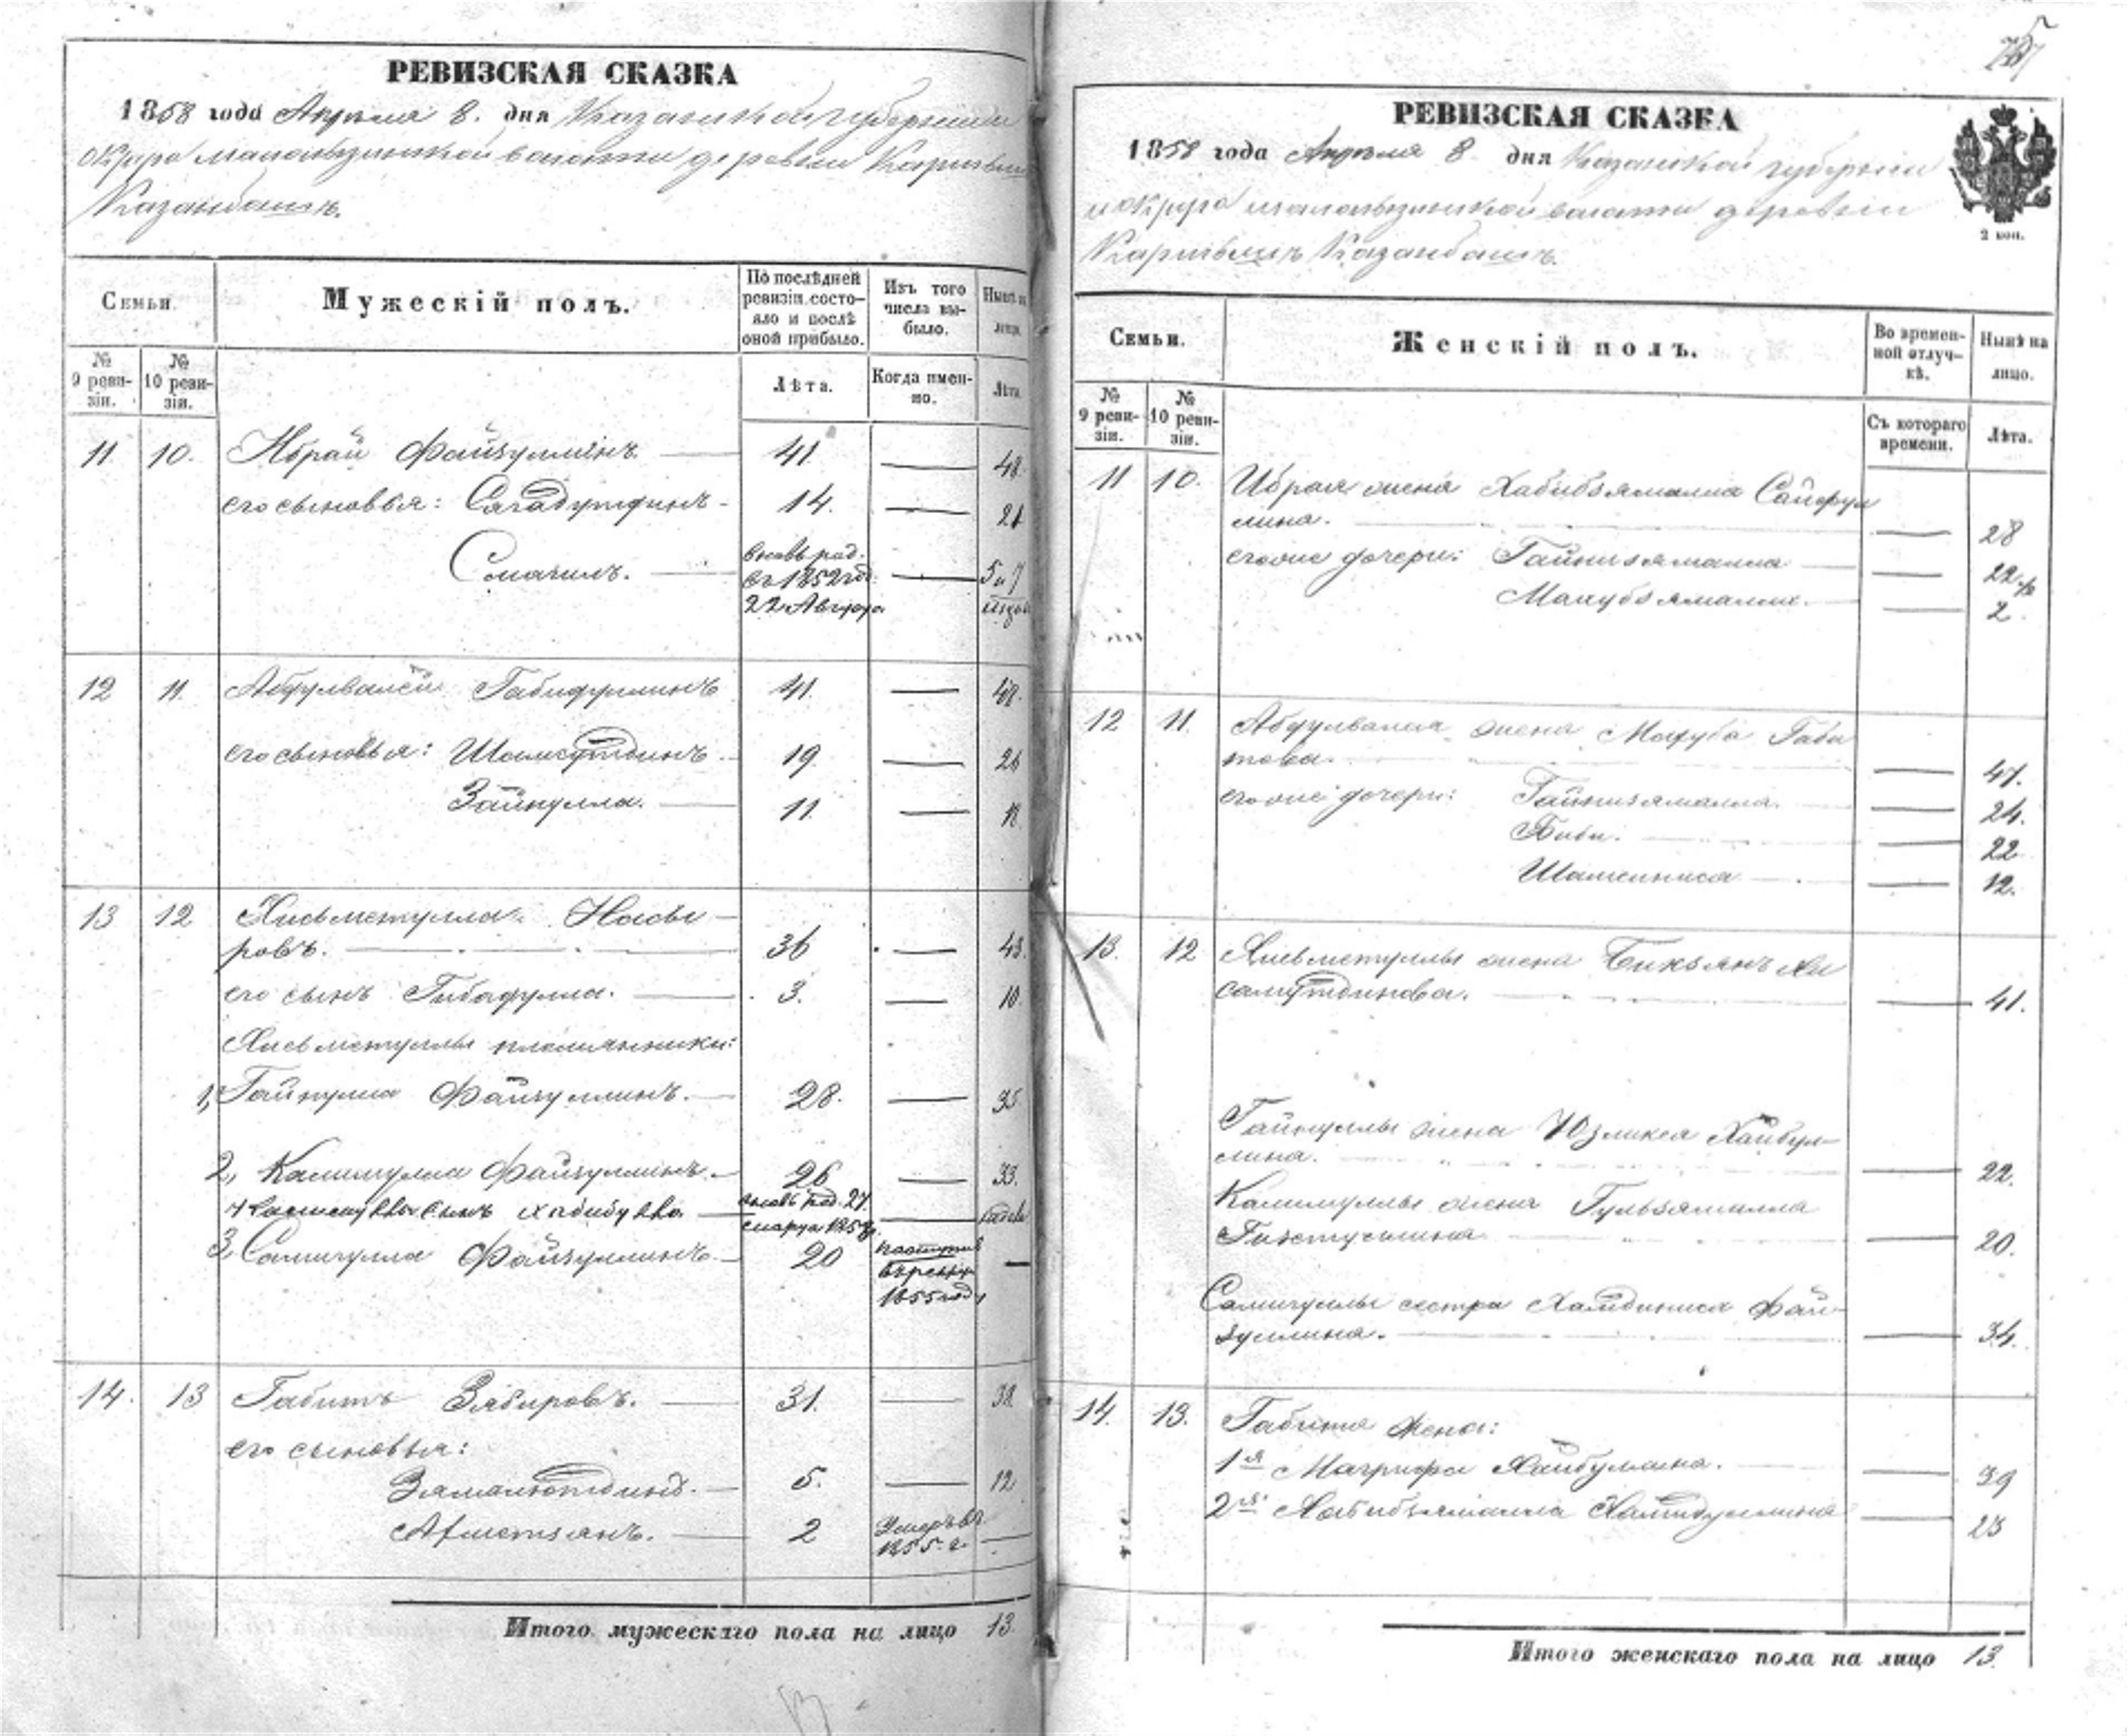 РЕВИЗСКАЯ СКАЗКА
1858 года Апреля 8. дня Казанской губернии и
округа малоатнинской волости деревни
Казанбашъ.
Семьи.
Мужескій полъ.
По послѣдней
ревизіи состо-
яло и послѣ
оной прибыло.
Изъ того
числа вы-
было.
Нынѣ на
лицо.
№
9 реви-
зіи.
№
10 реви-
зіи.
Лѣта.
Когда имен-
но.
Лѣта.
11 10. Ибрай Файзуллинъ 41. 48.
его сыновья: Сагадутдинъ 14. 21
Смагилъ. вновь рад. 5 и 7
въ 1852 год.
22 Августа
12 11. Абдулвалей Габидуллинъ 41. 48.
его сыновья: Шамсутдинъ 19. 26
Зайнулла. 11. 18.
13 12 Хисьметулла Насы-
ровъ. 36 43.
его сынъ Гибадулла. 3. 10
Хисьметуллы племянники:
1, Гайнулла Файзуллинъ. 28. 35
2, Калимулла Файзуллинъ. 26 33.
Калимуллы сынъ Хабибулла вновь рад. 27
марта 1858
3, Самигулла Файзуллинъ 20 поступил
1855 году
14. 13 Габитъ Забировъ. 31. 38.
его сыновья:
Замалютдинъ. 5. 12
Ахметзянъ. 2 Умеръ въ
1855. г.
Итого мужескаго пола на лицо 13.
РЕВИЗСКАЯ СКАЗКА
1858 года Апреля 8 дня Казанской губерніи
и округа малоатнинской волости деревни
Казанбашъ.
2 коп.
Семьи.
Женскій полъ.
Во времен-
ной отлуч-
кѣ.
Нынѣ на
лицо.
№
9 реви-
зіи.
№
10 реви-
зіи.
Съ котораго
времени.
Лѣта.
11 10. Ибрая жена Хабибзямалла Сайфул
лина. 28
его же дочери: Гайнизямалла 22
2
12 11. Абдулвалея жена Махуба Габи
това. 47.
его же дочери: Гайнизямалла. 24.
Биби. 22
Шамсиниса 12.
13. 12 Хисьметуллы жена Бикзянъ Хи
самутдинова. 41.
Гайнуллы жена Юзликея Хайбул-
лина. 22.
Калимуллы жена Гульзямалла
20.
Самигуллы сестра Хамдиниса Фай-
зуллина. 34.
14. 13. Габита жена:
1я Магрифа Хайбуллина. 39
2я Хабибзямалла Хамидуллина 23
Итого женскаго пола на лицо 13.